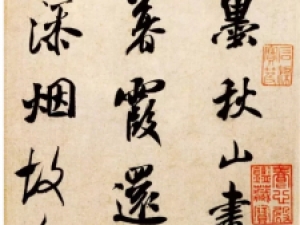 墨秋山畫
暮霞還
添烟故